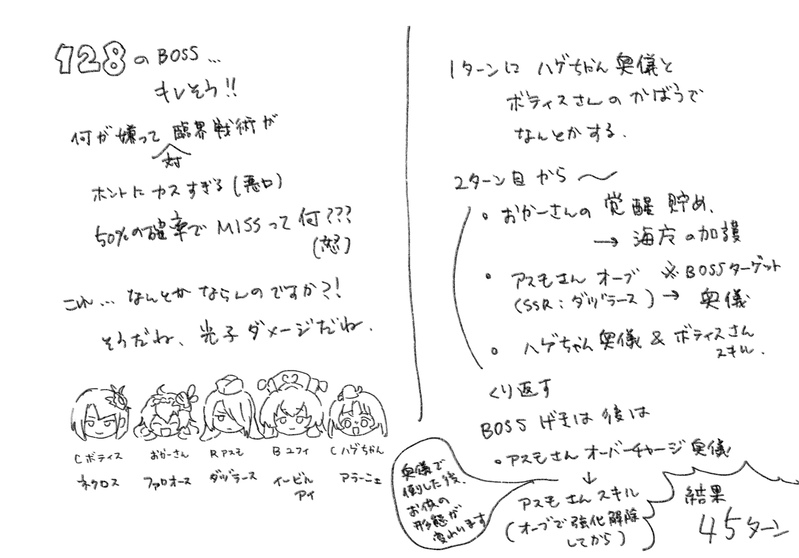 128のBOSS...
キレそう!!
何が嫌って対臨界戦術が
ホントにカスすぎる(悪口)
50%の確率でMISSって何???
(怒)
これ...なんとかならんのですか?!
そうだね、光子ダメージだね.
Cボティス
ネクロス
おかーさん
ファロオース
Rアスモ
ダヅラース
Bユフィ
イービル
アイ
Cハゲちゃん
アラーニェ
1ターンに ハゲちゃん奥儀と
ボティスさんのかばうで
なんとかする.
2ターン目から〜
・おかーさんの覚醒貯め、
→海方の加護
・アスモさん オーブ ※BOSSターゲット
(SSR:ダヅラース)→ 奥儀
・ハゲちゃん奥儀&ボティスさん
スキル.
くり返す
BOSSげきは後は
・アスモさんオーバーチャージ奥儀
↓
アスモさんスキル
(オーブで強化解除
してから)
奥儀で
倒した後、
お供の
形態が
変わります
結果
45ターン